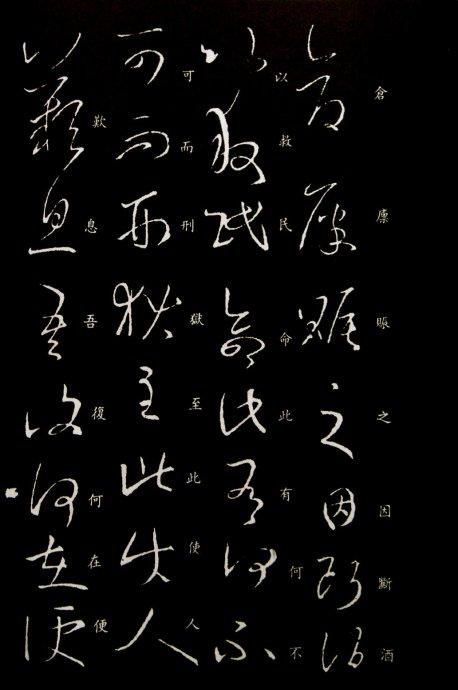 倉廩賑之因斷酒
以救民命此有何不
可而刑獄至此使人
歎息吾復何在便